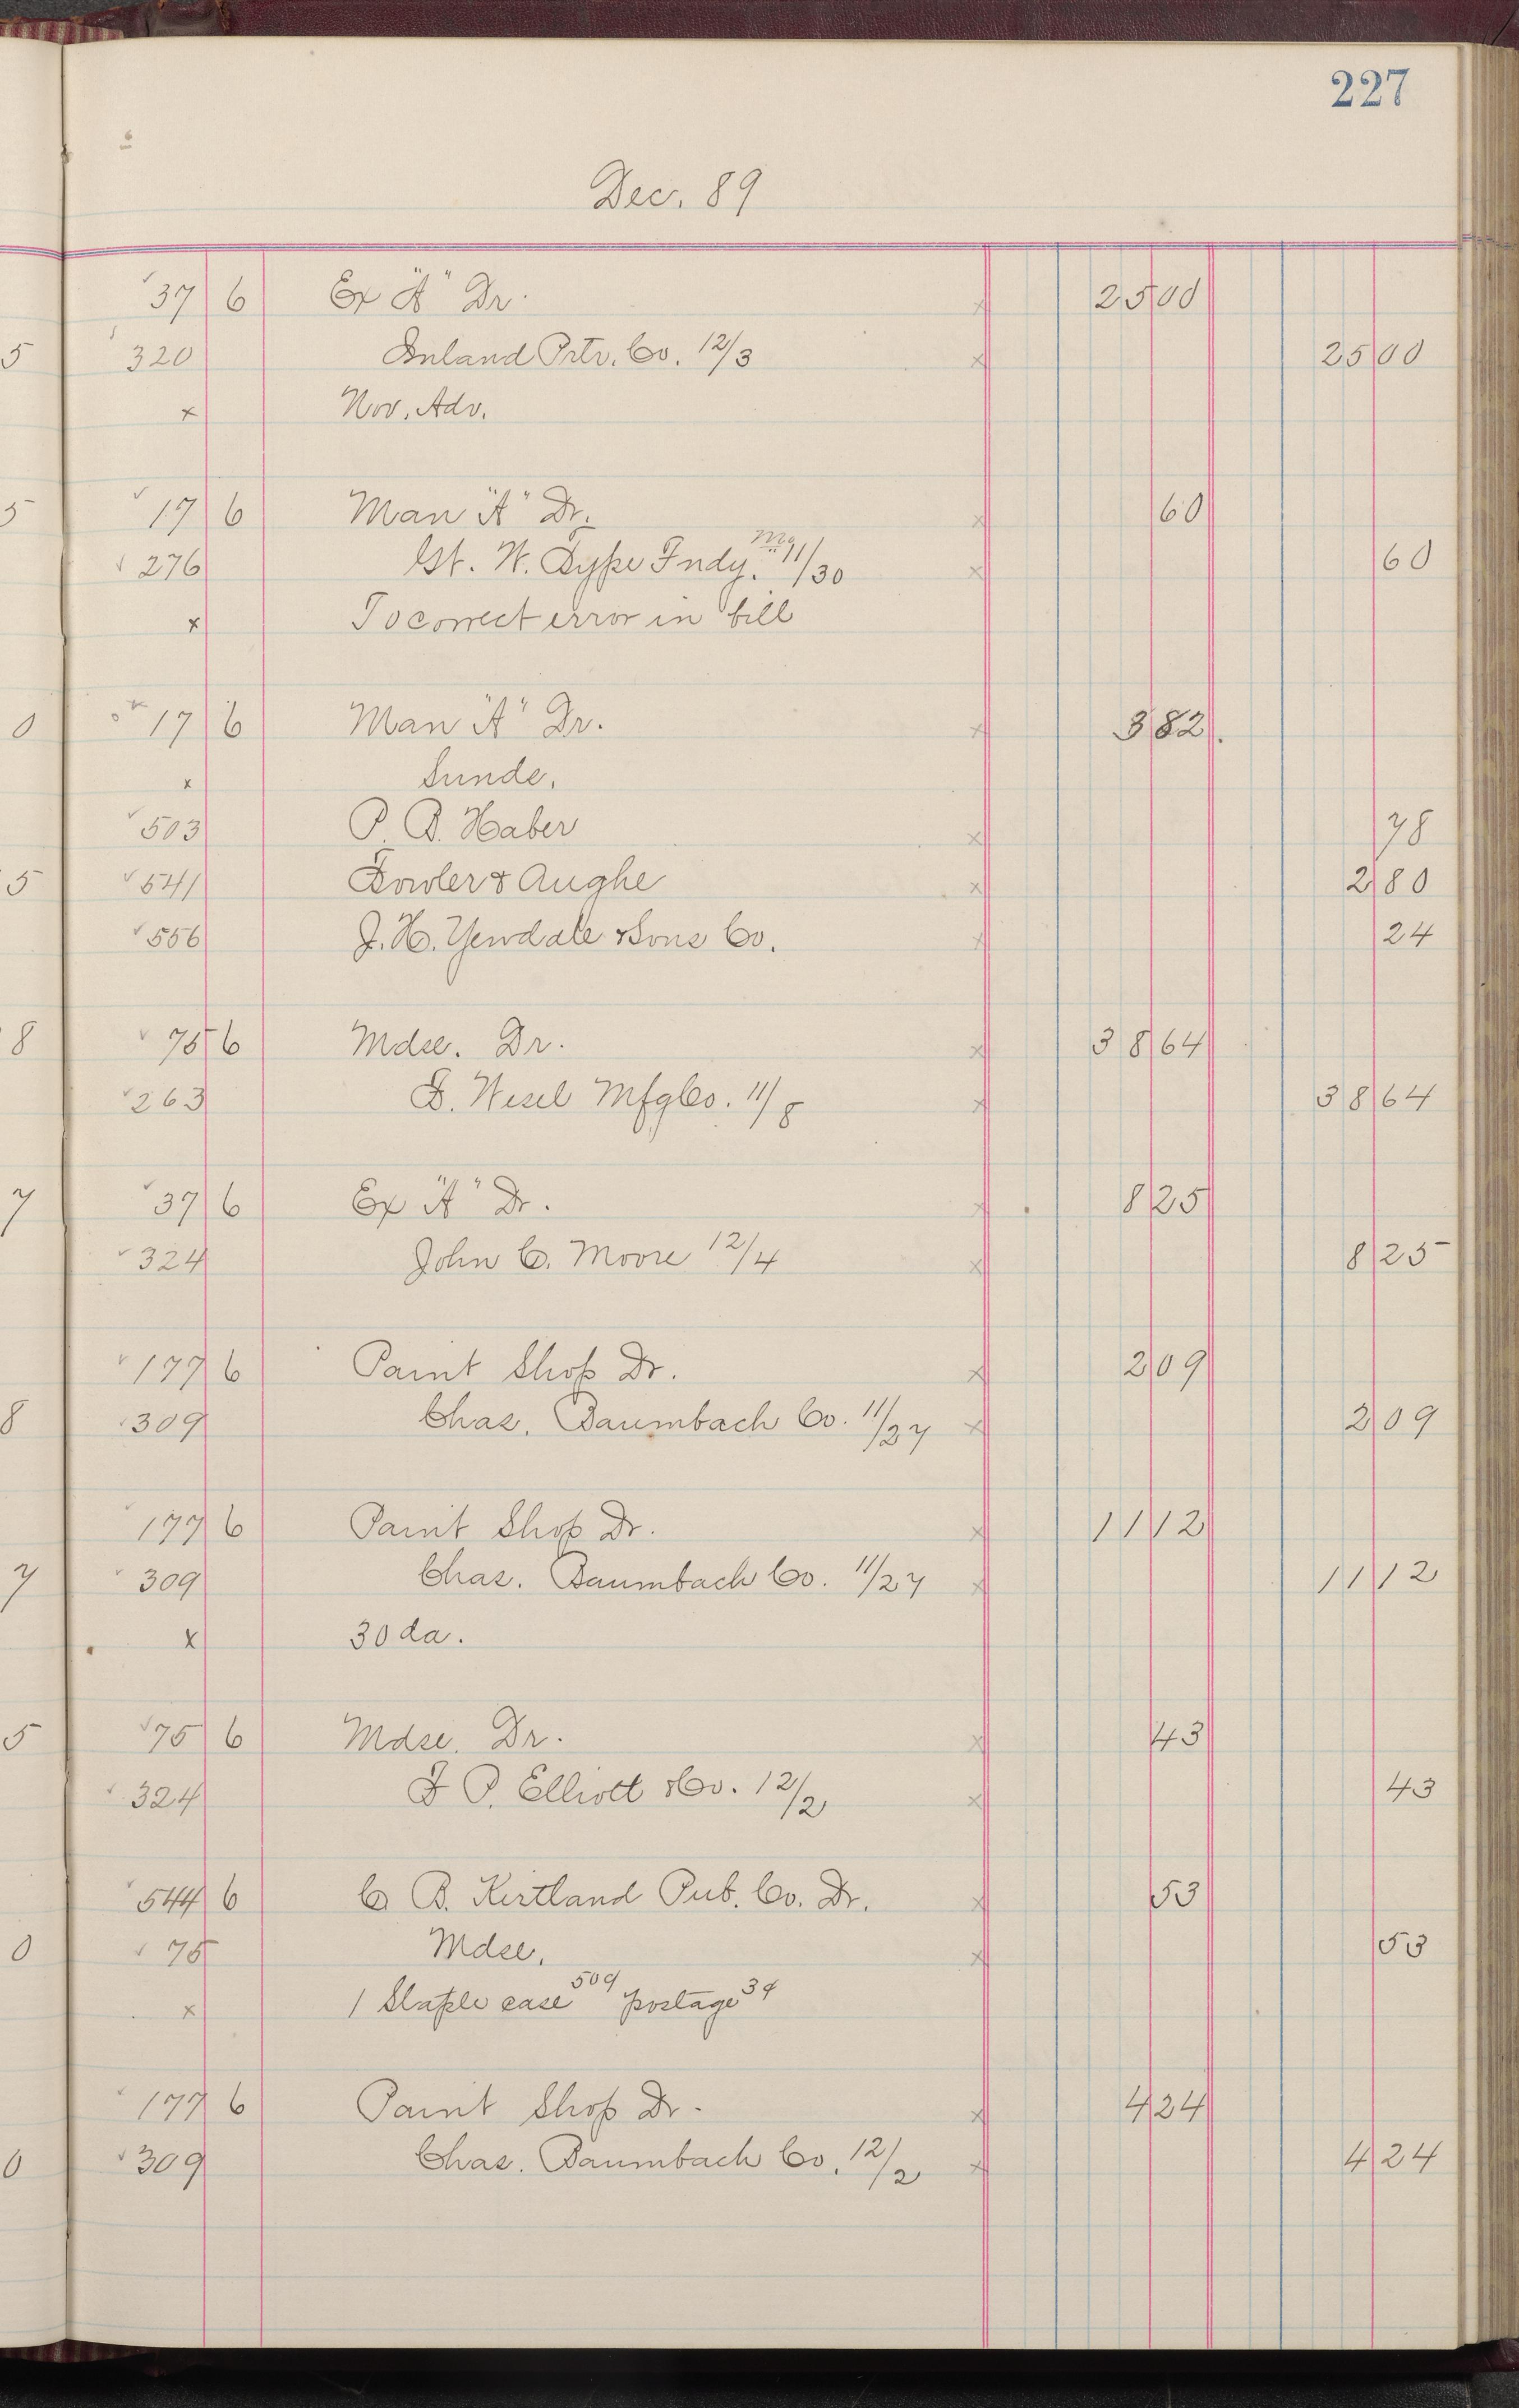 227
Dec. 89
37 6 Ex "A" Dr. 25 00
5 320 Inland Prtr. Co. 12/3 25 00
x Nov. Adv.
5 17 6 Man "A" Dr. 60
276 Gt. W. Type Fndy. 11/30 60
x To correct error in bill
0 17 6 Man "A" Dr. 3 82
x Sunde.
503 P. B. Haber 78
5 541 Fowler & Aughe 2 80
556 J. H. Yewdale & Sons Co. 24
8 75 6 Mdse. Dr. 38 64
263 F. Wesel Mfg Co. 11/8 38 64
7 37 6 Ex "A" Dr. 8 25
324 John C. Moore 12/4 8 25
177 6 Paint Shop Dr. 2 09
8 309 Chas. Baumbach Co. 11/27 2 09
177 6 Paint Shop Dr. 11 12
7 309 Chas. Baumbach Co. 11/27 11 12
x 30 da.
5 75 6 Mdse. Dr. 43
324 F. P. Elliott & Co. 12/2 43
544 6 C. B. Kirtland Pub. Co. Dr. 53
0 75 Mdse. 53
x 1 Staple case 50¢ postage 3¢
177 6 Paint Shop Dr. 4 24
0 309 Chas. Baumbach Co. 12/2 4 24